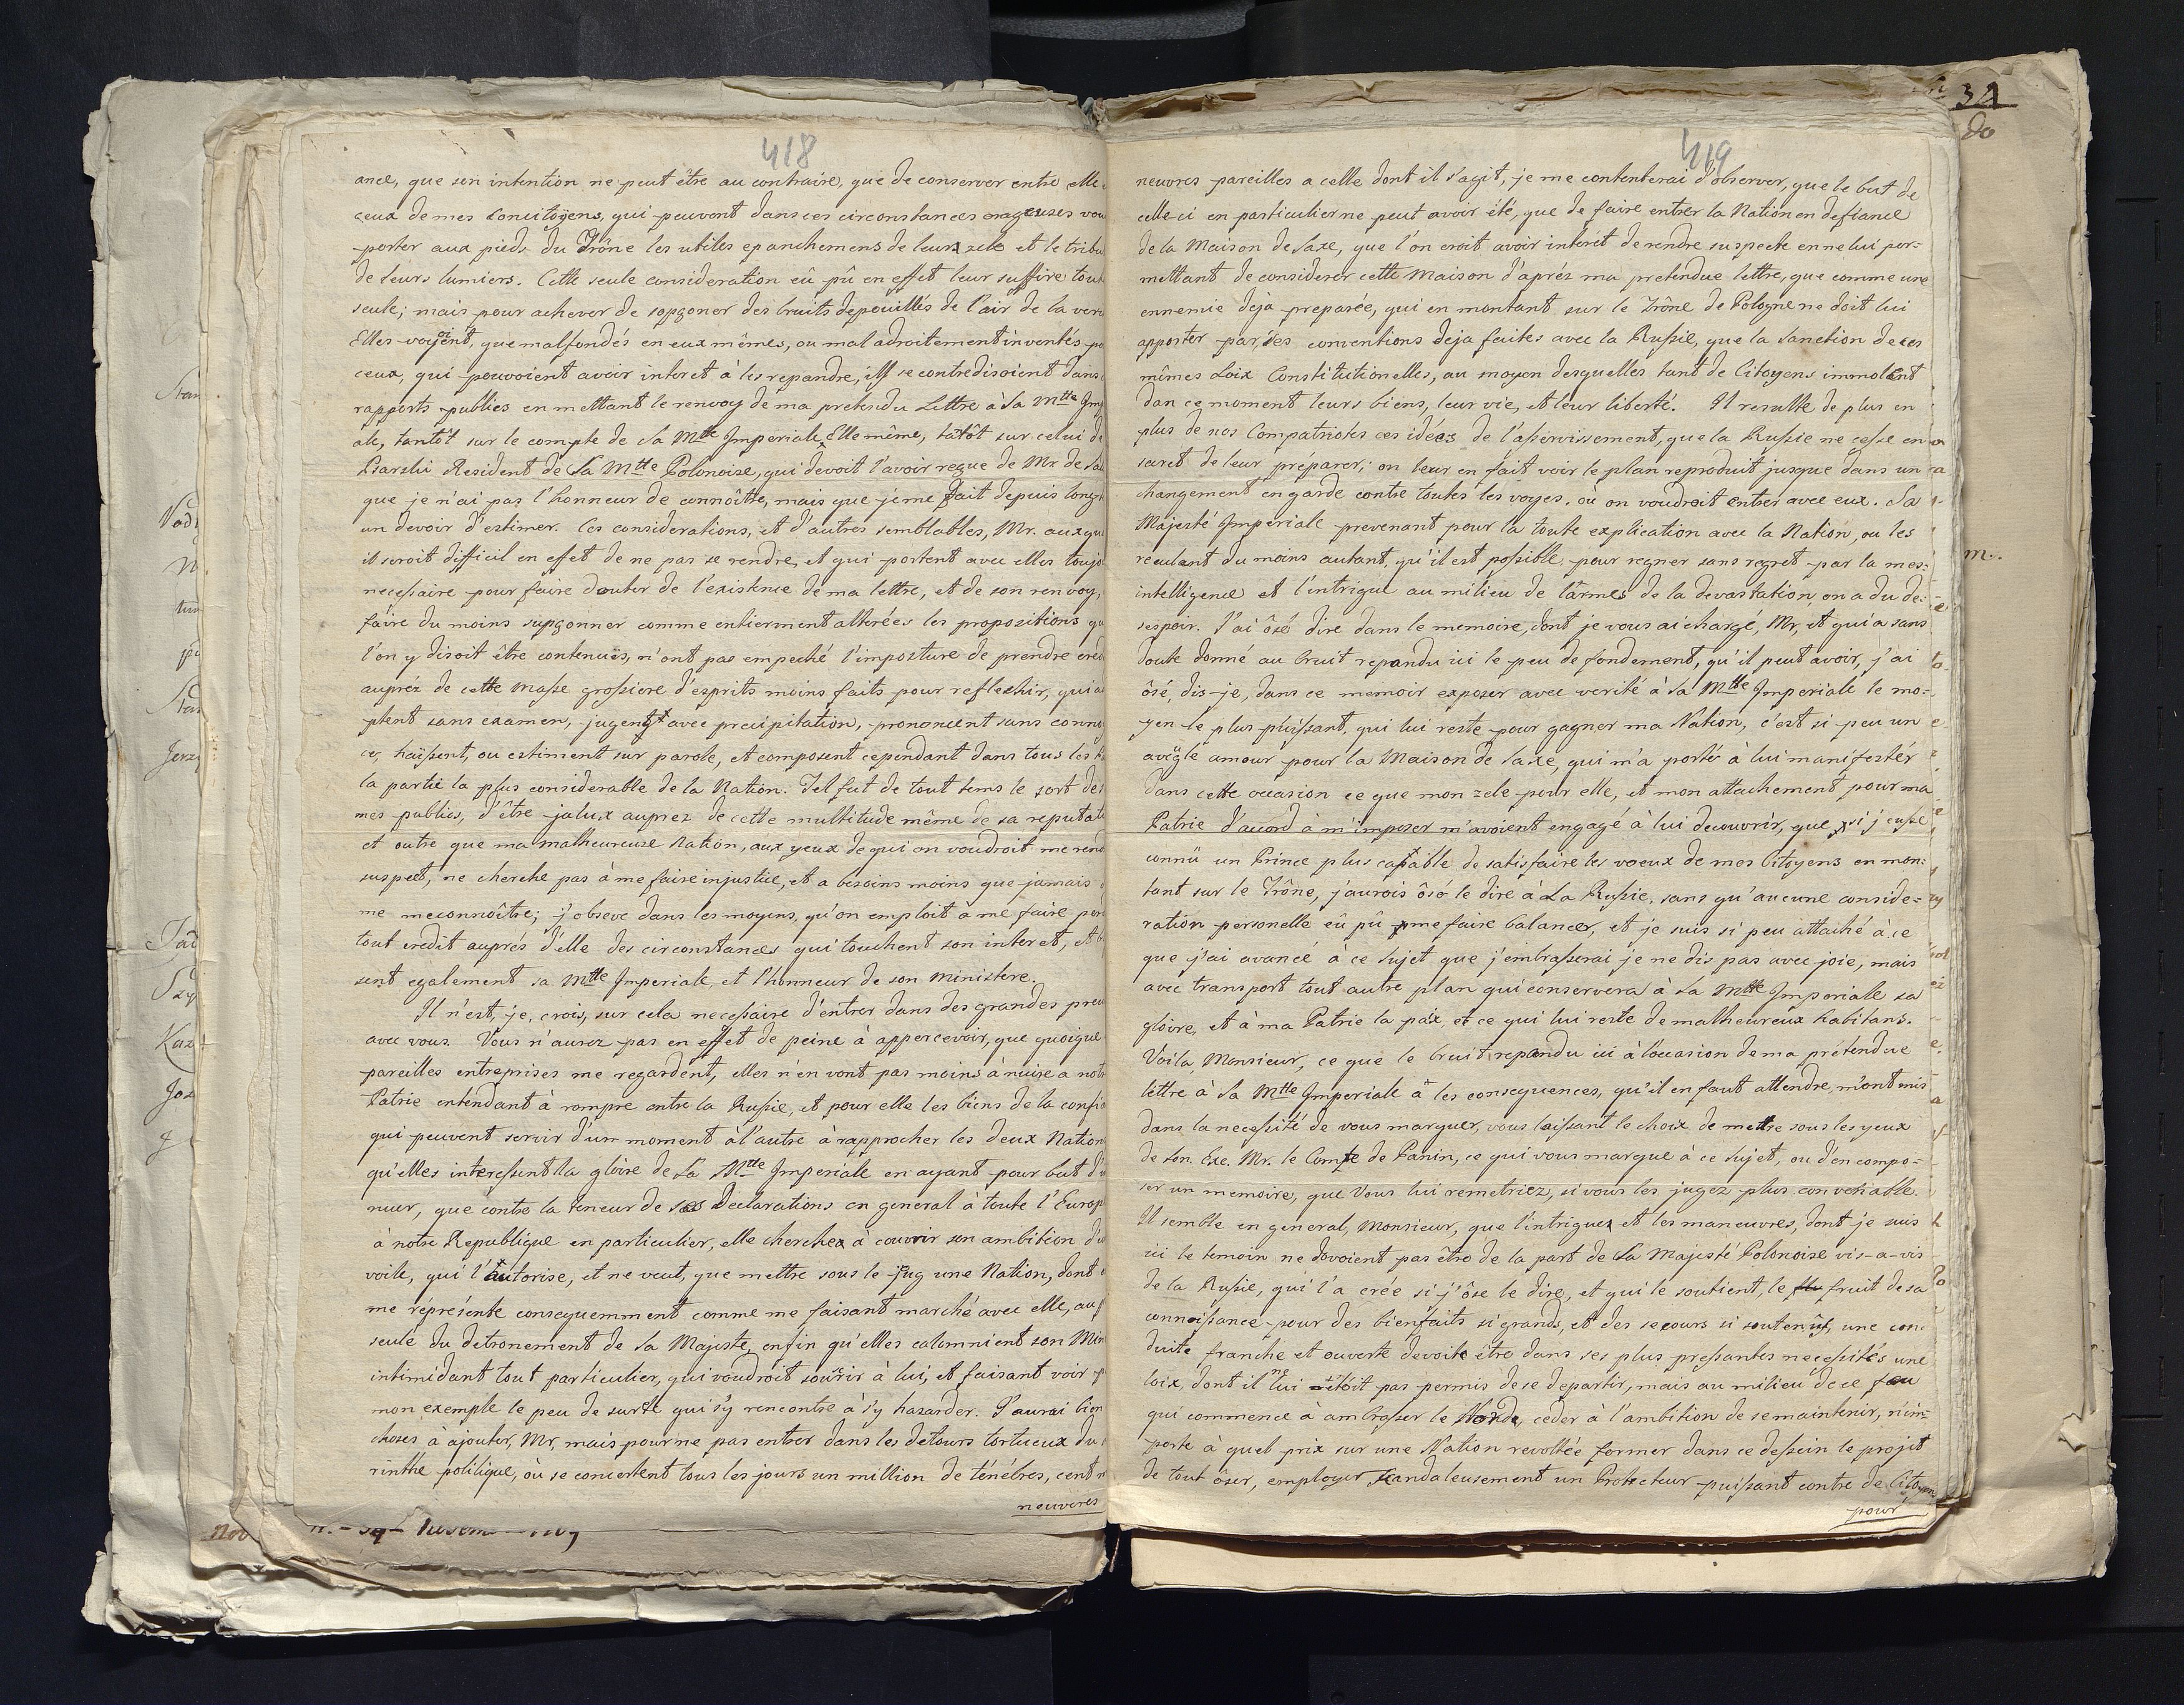 418
ance, que son intention ne peut être au contraire, que de conserver entre elle
ceux de mes Concitoÿens, qui peuvent dans ces circonstances orageuses
porter aux pieds du Trône les utiles epanchemens de leur zele et le
de leurs lumiers. Cette seule consideration eû pû en effet leur suffire
seule; mais pour achever de supçoner des bruits depouillés de l'air de la
Elles voyoient, que malfondés en eux mêmes, ou mal adroitement inventés
ceux, qui pouvoient avoir interet à les repandre, ils se contredisoient dans
rapports publics en mettant le renvoy de ma pretendu Lettre à Sa Mtte
ale, tantôt sur le compte de Sa Mtte Imperiale Elle même, tâtôt sur celui de
Psarski Resident de Sa Mtte Polonoise, qui devoit l'avoir reçue de Mr. de
que je n'ai pas l'honneur de connoître, mais que je me fait depuis
un devoir d'estimer. Ces considerations, et d'autres semblables, Mr. aux
il seroit difficil en effet de ne pas se rendre, et qui portent avec elles
necessaire pour faire douter de l'existence de ma lettre, et de son renvoy,
faire du moins supçonner comme entierment alterées les propositions
l'on y disoit être contenuës, n'ont pas empeché l'imposture de prendre
aupréz de cette Masse grossiere d'esprits moins faits pour reflechir, qui
ptent sans examen, jugent avec precipitation, prononcent sans
ce, haïssent, ou estiment sur parole, et composent cependant dans tous les
la partie la plus considerable de la Nation. Tel fut de tout tems le sort des
mes publics, d'être jalux auprez de cette multitude même de sa
et outre que ma malheureuse Nation, aux yeux de qui on voudroit me
suspect, ne cherche pas à me faire injustice, et a besoins moins que jamais
me meconnoître; j'obseve dans les moyens, qu'on emploit à me faire
tout credit auprés d'elle des circonstances qui touchent son interet, et
sent egalement sa Mtte Imperiale, et l'honneur de son Ministere.
Il n'est, je crois, sur cela necessaire d'entrer dans des grandes
avec vous. Vous n'aurez pas en effet de peine à appercevoir, que quoique
pareilles entreprises me regardent, elles n'en vont pas moins à nuire a
Patrie entendant à rompre entre la Russie, et pour elle les liens de la
qui peuvent servir d'un moment à l'autre à rapprocher les deux
qu'elles interessent la gloire de Sa Mtte Imperiale en ayant pour but
nuer, que contre la teneur de ses Declarations en general à toute l'
à notre Republique en particulier, elle cherche à couvrir son ambition
voile, qui l'autorise, et ne veut, que mettre sous le jug une Nation, dont
me réprésente consequemment comme me faisant marché avec elle, au
seule du detronement de Sa Majeste, enfin qu'elles calomnient son
intimidant tout particulier, qui voudroit à lui, et faisant voir
mon exemple le peu de sureté qui s'y rencontre à s'y hasarder. J'aurai bien
choses à ajouter, Mr, mais pour ne pas entrer dans les detours tortueux du
rinthe politique, où se concertent tous les jours un million de ténébres, cent
neuvres
419
neuvres pareilles a celle dont il s'agit, je me contenterai d'observer, que le but de
celle ci en particulier ne peut avoir été, que de faire entrer la Nation en defiance
de la Maison de Saxe, que l'on croit avoir interet de rendre suspecte en ne lui per-
mettant de considerer cette Maison d'aprés ma pretendue lettre, que comme une
ennemie deja preparée, qui en montant sur le Trône de Pologne ne doit lui
apporter par ses conventions deja faites avec la Russie, que la Sanction de ces
mêmes Loix Constitutionelles, au moyen desquelles tant de Citoyens immolent
dan ce moment leurs biens, leur vie, et leur liberté. Il resulte de plus en
plus de nos Compatriotes ces idées de l'asservissement, que la Russie ne cesse en
secret de leur préparer; on leur en fait voir le plan reproduit jusque dans un
changement en garde contre toutes les voyes, où on voudroit entrer avec eux. Sa
Majesté Imperiale prevenant pour la toute explication avec la Nation, ou les
reculant du moins autant, qu'il est possible, pour regner sans regret par la mes-
intelligence et l'intrigue au milieu de l'armes de la devastation, on a du de-
sespoir. J'ai ôsé dire dans le memoire, dont je vous ai chargé, Mr, et qui a sans
doute donné au bruit repandu ici le peu de fondement, qu'il peut avoir, j'ai
ôsé, dis-je, dans ce memoir exposer avec verité à Sa Mtte Imperiale le mo-
yen le plus puissant, qui lui reste pour gagner ma Nation, c'est si peu un
aveuglé amour pour la Maison de Saxe, qui m'a porté à lui manifestér
dans cette occasion ce que mon zele pour elle, et mon attachement pour ma
Patrie d'accord à m'imposer m'avoient engagé à lui decouvrir, que si j'eusse
connû un Prince plus capable de satisfaire les voeux de mes Citoyens en mon-
tant sur le Trône, j'aurois ôsé le dire à La Russie, sans qu'aucune conside-
ration personelle eû pû me faire balancer, et je suis si peu attaché à ce
que j'ai avancé à ce sujet que j'embrasserai je ne dis pas avec joie, mais
avec transport tout autre plan qui conservera à Sa Mtte Imperiale sa
gloire, et à ma Patrie la paix, et ce qui lui reste de malheureux habitans.
Voila, Monsieur, ce que le bruit repandu ici à l'occasion de ma prétendue
lettre à Sa Mtte Imperiale à les consequences, qu'il en faut attendre, m'ont mis
dans la necessité de vous marquer, vous laissant le choix de mettre sous les yeux
de Son Exc. Mr. le Comte de Panin, ce qui vous marque à ce sujet, ou d'en compo-
ser un memoire, que Vous lui remetriez, si vous les jugez plus convenable.
Il semble en general, Monsieur, que l'intrigues et les manœuvres, dont je suis
ici le temoin ne devoient pas être de la part de Sa Majesté Polonoise vis-a-vis
de la Russie, qui l'a crée si j'ôse le dire, et qui le soutient, le fruit de sa
connoissance pour des bienfaits si grands, et des secours si soutenûs, une con-
duite franche et ouverte devoite être dans ses plus pressantes necessités une
loix, dont il ne lui étoit pas permis de se departir, mais au milieu de ce feu
qui commence à ambraser le Monde, ceder à l'ambition de se maintenir, n'im-
porte à quel prix sur une Nation revoltée former dans ce dessein le projet
de tout ôser, employer scandaleusement un Protecteur puissant contre de Citoyens
pour